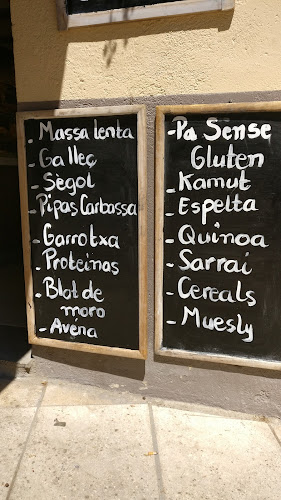 - Massa lenta
- Galleç
- Sègol
- Pipas Carbassa
Garrotxa
- Proteinas
- Blat de
moro
- Avéna
- Pa Sense
Gluten
- Kamut
- Espelta
- Quinoa
- Sarrai
- Cereals
- Muesly